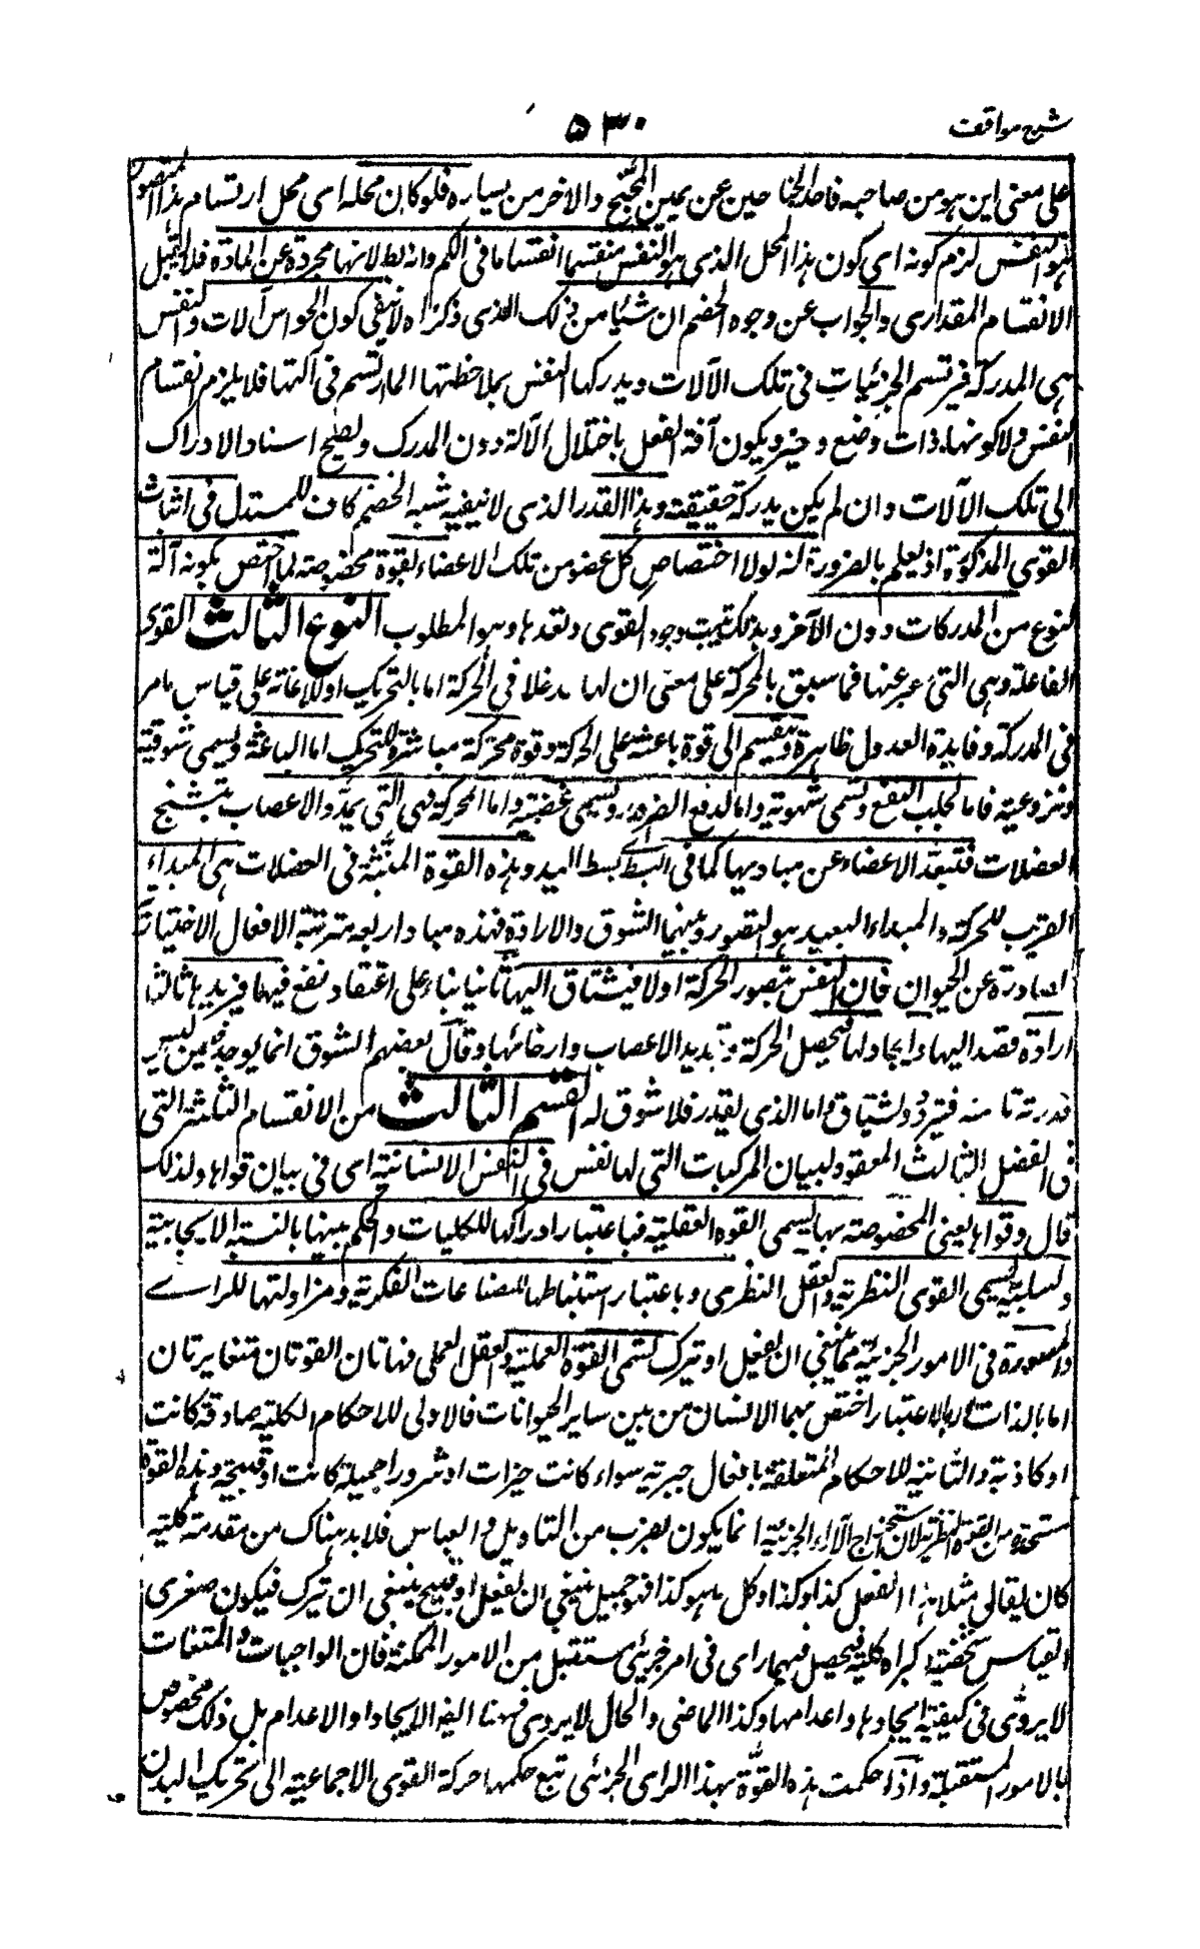 شرح مواقف
۵۳۰
على معنى اين هو من صاحبه فاحد الجناحين عن يمين المجنح والاخر من يساره فلو كان محله اى محل ارتسام هذا المتصور
هو النفس لزم كونه اى كون هذا المحل الذى هو النفس منقسما انقساما فى الكم وانه بط لانها مجردة عن المادة فلا تقبل
الانقسام المقدارى والجواب عن وجوه الخصم ان شيئا من ذلك الذى ذكراه لا ينفى كون الحواس آلات والنفس
هى المدركة فيرتسم الجزئيات فى تلك الآلات ويدركها النفس بملاحظتها لما ارتسم فى آلتها فلا يلزم انقسام
النفس ولا كونها ذات وضع وحيز ويكون آفة الفعل باختلال الآلة دون المدرك ويصح اسناد الادراك
الى تلك الآلات وان لم يكن مدركة حقيقة وهذا القدر الذى لا ينفيه شبه الخصم كاف للمستدل فى اثبات
القوى المذكورة اذ يعلم بالضرورة انه لولا اختصاص كل عضو من تلك الاعضاء بقوة مخصوصة لما اختص بكونه آلة
لنوع من المدركات دون الآخر وبذلك يثبت وجود القوى وتعددها وهو المطلوب النوع الثالث القوى
الفاعلة وهى التى عبر عنها فما سبق بالمحركة على معنى ان لها مدخلا فى الحركة اما بالتحريك او الاعانة على قياس مامر
فى المدركة وفايدة العدول ظاهرة وتنقسم الى قوة باعثة على الحركة وقوة محركة مباشرة للتحريك اما الباعثة وتسمى شوقية
ونزوعية فاما لجلب النفع وتسمى شهوية واما لدفع الضرر وتسمى غضبية واما المحركة فهى التى تمدد الاعصاب بتشنج
العضلات فتبعد الاعضاء عن مباديها كما فى البسط اى بسط اليد وهذه القوة المنبثة فى العضلات هى المبداء
القريب للحركة والمبداء البعيد هو التصور وبينهما الشوق والارادة فهذه مباد اربعة مترتبة الافعال الاختيارية
الصادرة عن الحيوان فان النفس تتصور الحركة اولا فيشتاق اليها ثانيا بناء على اعتقاد نفع فيها فيريدها ثالثا
ارادة قصد اليها وايجاد لها فيحصل الحركة بتمديد الاعصاب وارخائها وقال بعضهم الشوق انما يوجد فيمن ليس
قدرته تامة فيتردد ويشتاق واما الذى يقدر فلا شوق له القسم الثالث من الاقسام الثلثة التى
فى الفصل الثالث المعقود لبيان المركبات التى لها نفس فى النفس الانسانية اى فى بيان قواها ولذلك
قال وقواها يعنى المخصوصة بها يسمى القوة العقلية فباعتبار ادراكها للكليات والحكم بينها بالنسبة الايجابية
والسلبية يسمى القوى النظرية والعقل النظرى وباعتبار استنباطها للصناعات الفكرية ومزاولتها للراى
والمشورة فى الامور الجزئية مما ينبغى ان يفعل او يترك تسمى القوة العملية والعقل العملى فهاتان القوتان متغايرتان
اما بالذات او بالاعتبار اختص بهما الانسان من بين ساير الحيوانات فالاولى للاحكام الكلية صادقة كانت
او كاذبة والثانية للاحكام المتعلقة بافعال جزئية سواء كانت خيرات او شرورا جميلة كانت او قبيحة وهذه القوة
مستمدة من القوة النظرية لان استخراج الآراء الجزئية انما يكون بضرب من التاويل والقياس فلا بد هناك من مقدمة كلية
كان يقال مثلا هذا الفعل كذا وكذا وكل ما هو كذا فهو جميل ينبغى ان يفعل او قبيح ينبغى ان يترك فيكون صغرى
القياس شخصية وكبراه كلية فيحصل فيهما راى فى امر جزئى مستقبل من الامور الممكنة فان الواجبات والممتنعات
لا يروى فى كيفية ايجادها واعدامها وكذا الماضى والحال لا يروى فيهما ايضا لايجاد او الاعدام بل ذلك مخصوص
بالامور المستقبلة واذا حكمت هذه القوة بهذا الراى الجزئى تبع حكمها حركة القوى الاجماعية الى تحريك البدن